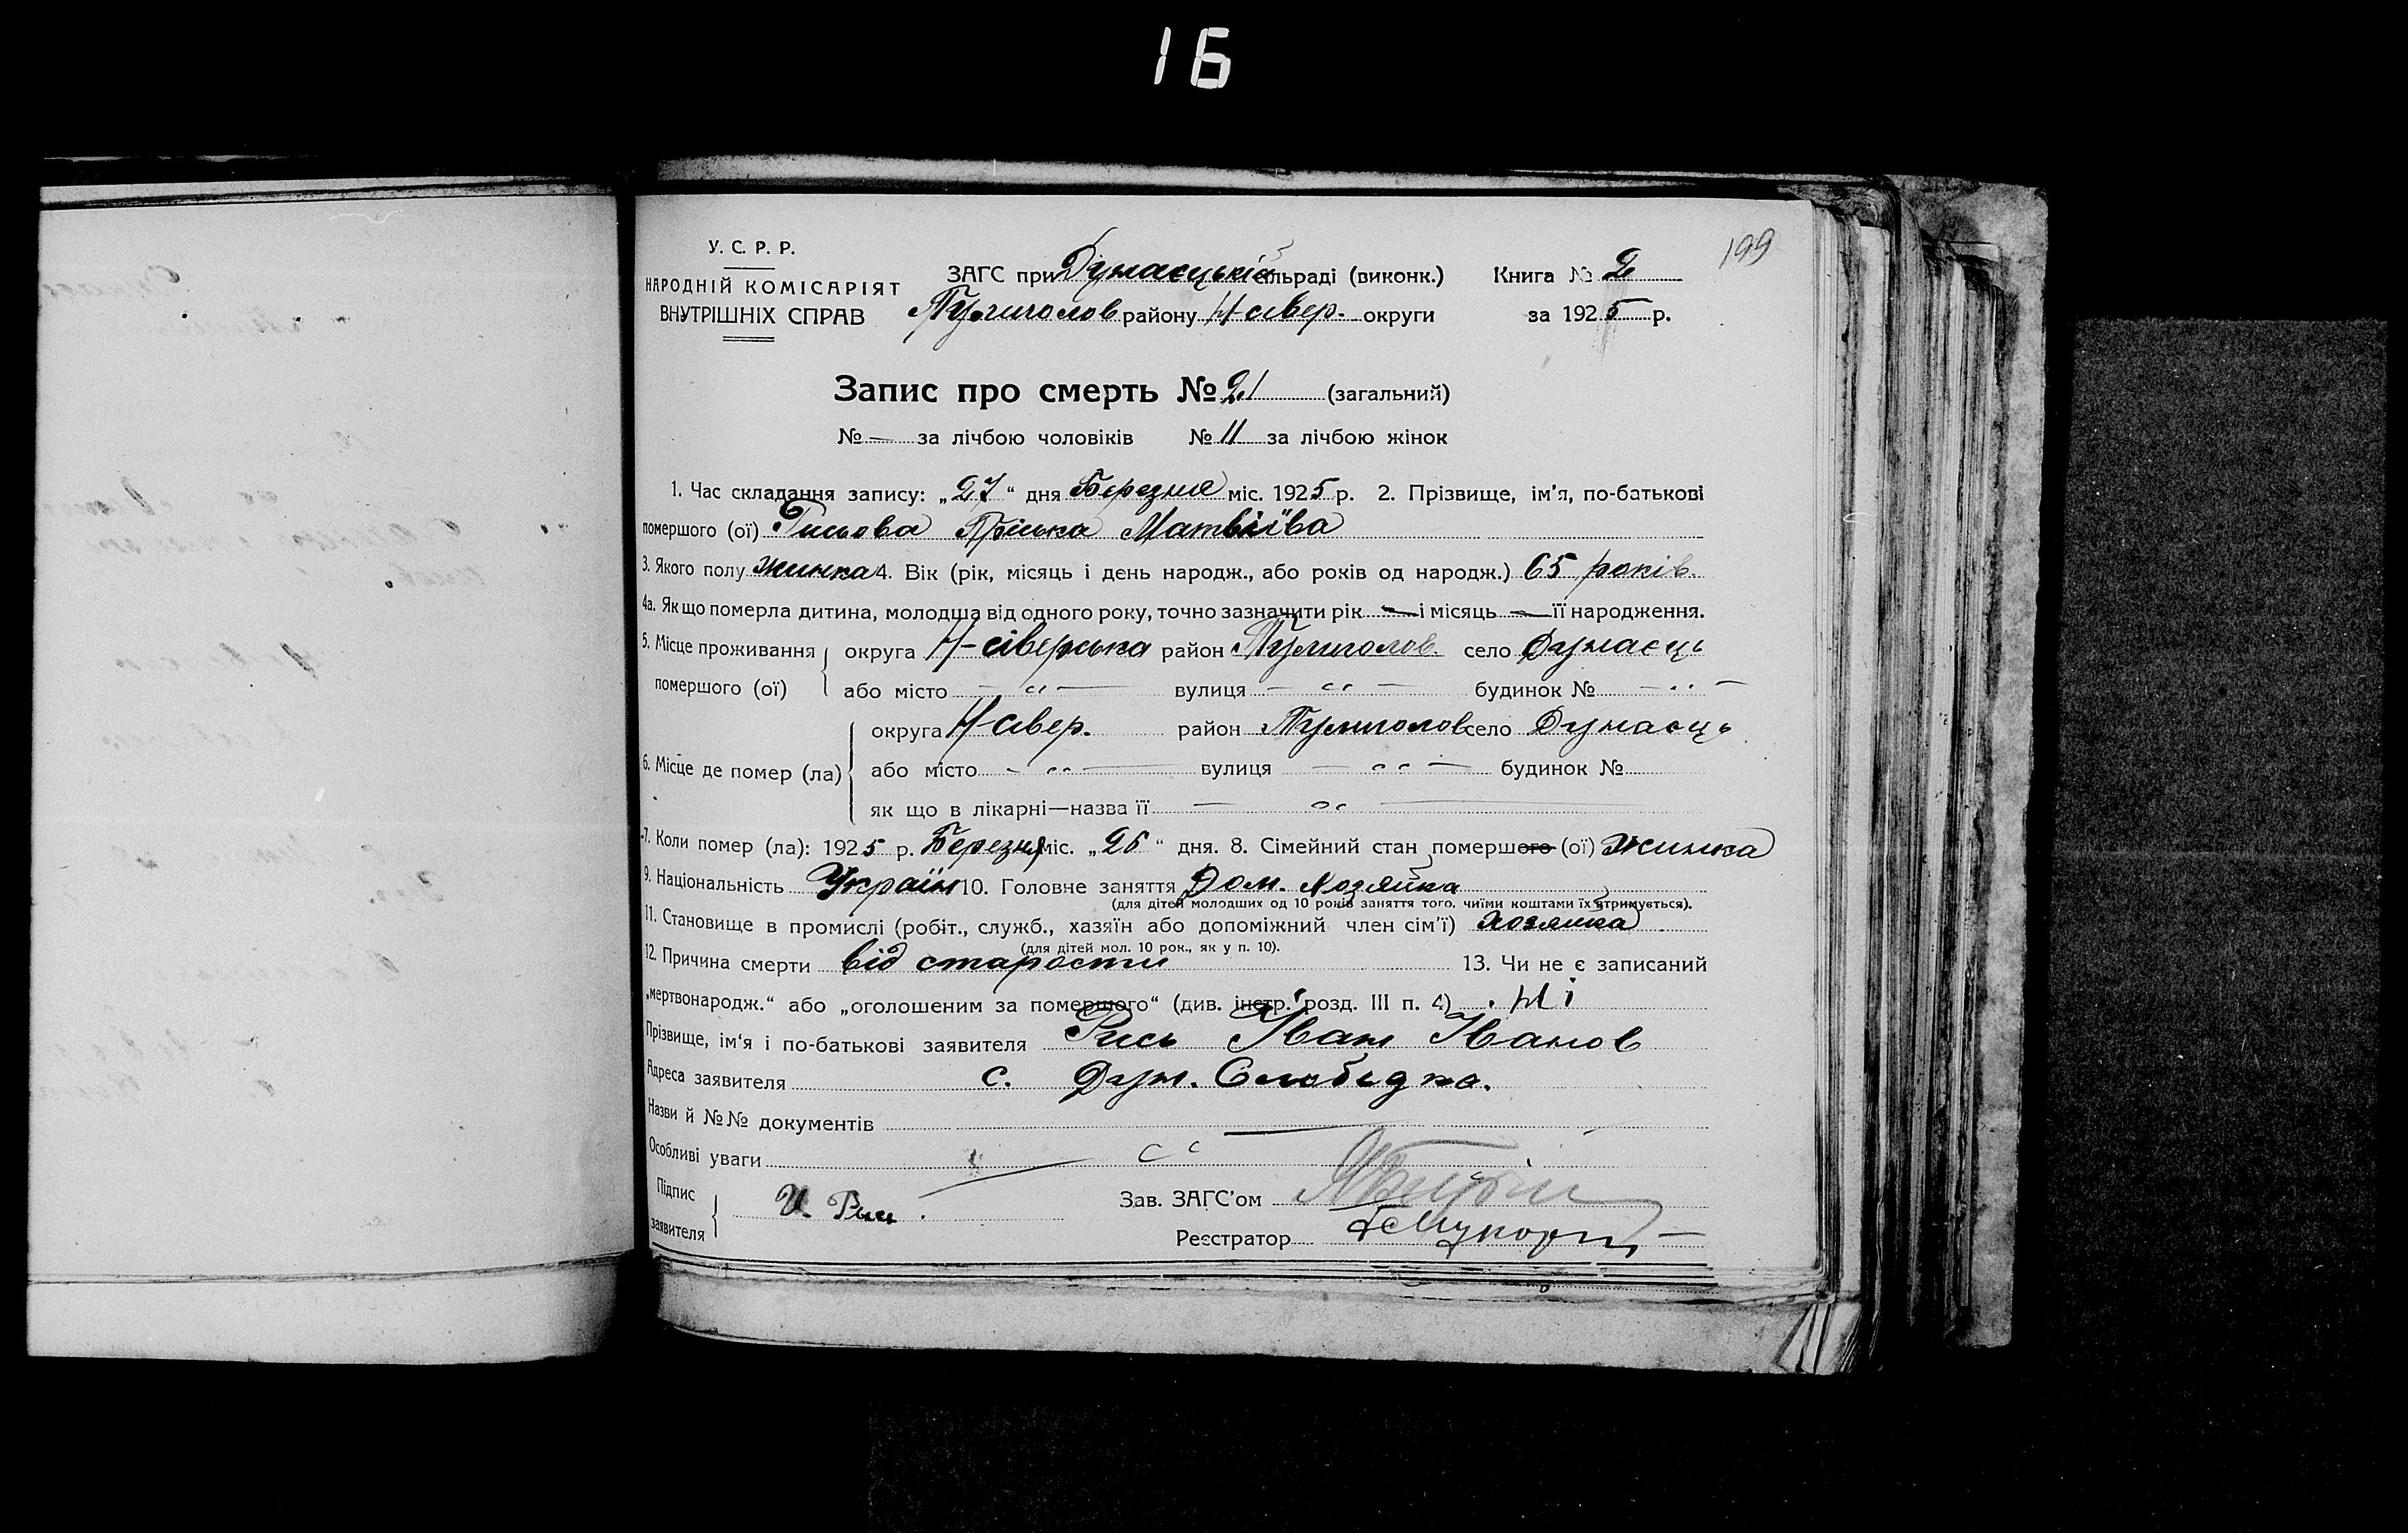 16
199
У. С. Р. Р.
НАРОДНІЙ КОМІСАРІЯТ
ВНУТРІШНІХ СПРАВ
ЗАГС при Дунаєцькій сільраді (виконк.) Книга № 2
Путиголов району Н-сівер. округи за 1925 р.
Запис про смерть № 21 (загальний)
№ — за лічбою чоловіків № 11 за лічбою жінок
1. Час складання запису: „27“ дня Березня міс. 1925 р. 2. Прізвище, ім'я, по-батькові
помершого (ої) Рисьова Пріська Матвіїва
3. Якого полу жинка 4. Вік (рік, місяць і день народж., або років од народж.) 65 років.
4а. Як що померла дитина, молодша від одного року, точно зазначити рік — і місяць — її народження.
5. Місце проживання округа Н-сіверська район село Дунаєць
помершого (ої) або місто — " — вулиця — " — будинок № — " —
округа Н-сівер. район село Дунаєць
6. Місце де помер (ла) або місто — " — вулиця — " — будинок №
як що в лікарні—назва її — " —
7. Коли помер (ла): 1925 р. Березня міс. „26“ дня. 8. Сімейний стан помершого (ої) Жинка
9. Національність Україн 10. Головне заняття Дом. Хозяйка
(для дітей молодших од 10 років заняття того, чиїми коштами їх утримується).
11. Становище в промислі (робіт., служб., хазяїн або допоміжний член сім'ї) хозяйка
(для дітей мол. 10 рок., як у п. 10).
12. Причина смерти від старости 13. Чи не є записаний
„мертвонародж.“ або „оголошеним за помершого“ (див. інстр. розд. III п. 4) Ні
Прізвище, ім'я і по-батькові заявителя Рись Іван Іванов
Адреса заявителя с. Дун. Слобідка.
Назви й №№ документів —
Особливі уваги — "
Підпис
заявителя И. Рись. Зав. ЗАГС'ом
Реєстратор